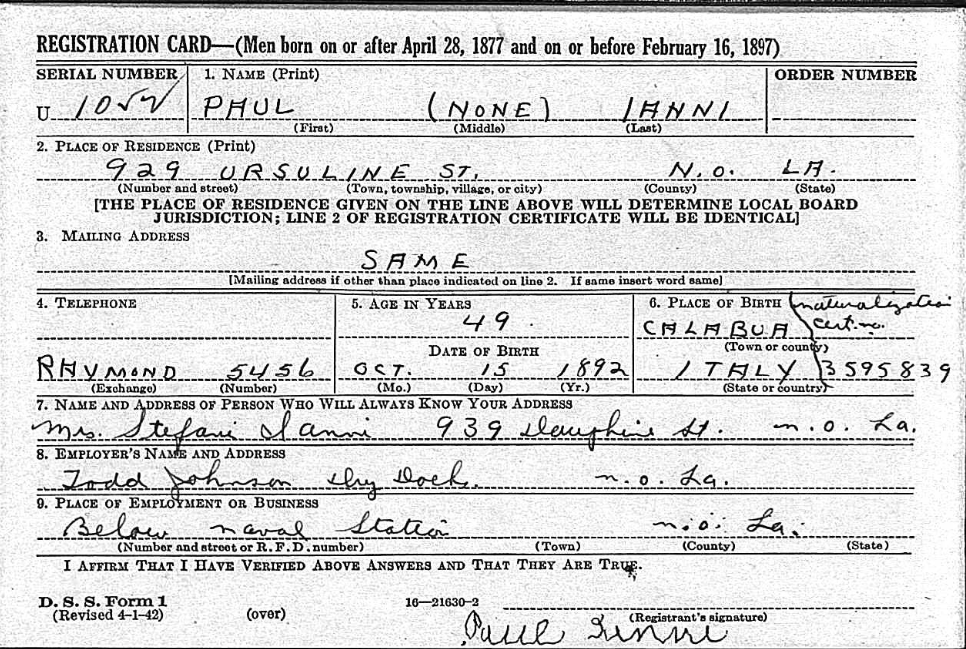 REGISTRATION CARD—(Men born on or after April 28, 1877 and on or before February 16, 1897)
SERIAL NUMBER 1. NAME (Print) ORDER NUMBER
U 1052 PAUL (NONE) IANNI
(First) (Middle) (Last)
2. PLACE OF RESIDENCE (Print)
929 URSULINE ST. N.O. LA.
(Number and street) (Town, township, village, or city) (County) (State)
[THE PLACE OF RESIDENCE GIVEN ON THE LINE ABOVE WILL DETERMINE LOCAL BOARD
JURISDICTION; LINE 2 OF REGISTRATION CERTIFICATE WILL BE IDENTICAL]
3. MAILING ADDRESS
SAME
[Mailing address if other than place indicated on line 2. If same insert word same]
4. TELEPHONE 5. AGE IN YEARS 6. PLACE OF BIRTH naturalization
49. CALABUA cert. no.
DATE OF BIRTH (Town or county)
RAYMOND 5456 OCT. 15 1892 ITALY 3595839
(Exchange) (Number) (Mo.) (Day) (Yr.) (State or country)
7. NAME AND ADDRESS OF PERSON WHO WILL ALWAYS KNOW YOUR ADDRESS
Mrs. Stefani Ianni 939 Dauphine St. N.O. La.
8. EMPLOYER'S NAME AND ADDRESS
Todd Johnson Dry Dock. N.O. La.
9. PLACE OF EMPLOYMENT OR BUSINESS
Below Naval Station N.O. La.
(Number and street or R. F. D. number) (Town) (County) (State)
I AFFIRM THAT I HAVE VERIFIED ABOVE ANSWERS AND THAT THEY ARE TRUE.
D. S. S. Form 1
(Revised 4-1-42) (over) 16—21630-2
(Registrant's signature)
Paul Ianni